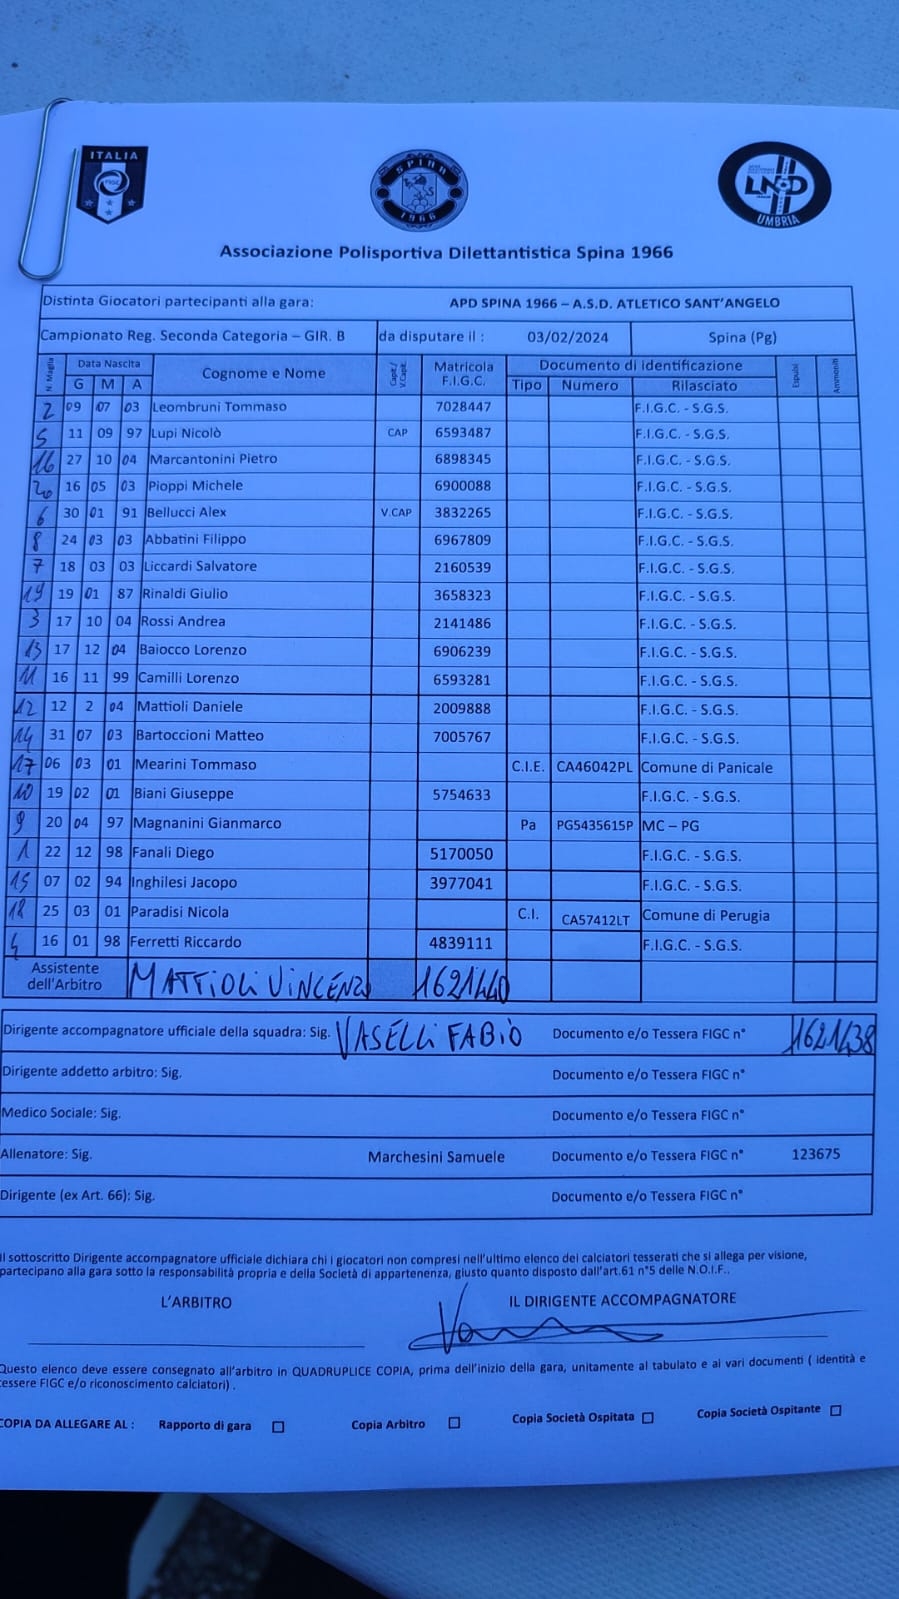 ITALIA
FIGC
SPINA
1966
LND
UMBRIA
Associazione Polisportiva Dilettantistica Spina 1966
Distinta Giocatori partecipanti alla gara: APD SPINA 1966 – A.S.D. ATLETICO SANT'ANGELO
Campionato Reg. Seconda Categoria – GIR. B da disputare il : 03/02/2024 Spina (Pg)
N. Maglia Data Nascita Cognome e Nome Capit./ V.Capit. Matricola F.I.G.C. Documento di identificazione Espulsi Ammoniti
G M A Tipo Numero Rilasciato
2 09 07 03 Leombruni Tommaso 7028447 F.I.G.C. - S.G.S.
5 11 09 97 Lupi Nicolò CAP 6593487 F.I.G.C. - S.G.S.
16 27 10 04 Marcantonini Pietro 6898345 F.I.G.C. - S.G.S.
20 16 05 03 Pioppi Michele 6900088 F.I.G.C. - S.G.S.
6 30 01 91 Bellucci Alex V.CAP 3832265 F.I.G.C. - S.G.S.
8 24 03 03 Abbatini Filippo 6967809 F.I.G.C. - S.G.S.
7 18 03 03 Liccardi Salvatore 2160539 F.I.G.C. - S.G.S.
19 19 01 87 Rinaldi Giulio 3658323 F.I.G.C. - S.G.S.
3 17 10 04 Rossi Andrea 2141486 F.I.G.C. - S.G.S.
13 17 12 04 Baiocco Lorenzo 6906239 F.I.G.C. - S.G.S.
11 16 11 99 Camilli Lorenzo 6593281 F.I.G.C. - S.G.S.
12 12 2 04 Mattioli Daniele 2009888 F.I.G.C. - S.G.S.
14 31 07 03 Bartoccioni Matteo 7005767 F.I.G.C. - S.G.S.
17 06 03 01 Mearini Tommaso C.I.E. CA46042PL Comune di Panicale
10 19 02 01 Biani Giuseppe 5754633 F.I.G.C. - S.G.S.
9 20 04 97 Magnanini Gianmarco Pa PG5435615P MC – PG
1 22 12 98 Fanali Diego 5170050 F.I.G.C. - S.G.S.
15 07 02 94 Inghilesi Jacopo 3977041 F.I.G.C. - S.G.S.
18 25 03 01 Paradisi Nicola C.I. CA57412LT Comune di Perugia
4 16 01 98 Ferretti Riccardo 4839111 F.I.G.C. - S.G.S.
Assistente dell'Arbitro MATTIOLI VINCENZO 1621440
Dirigente accompagnatore ufficiale della squadra: Sig. VASELLI FABIO Documento e/o Tessera FIGC n° 1621438
Dirigente addetto arbitro: Sig. Documento e/o Tessera FIGC n°
Medico Sociale: Sig. Documento e/o Tessera FIGC n°
Allenatore: Sig. Marchesini Samuele Documento e/o Tessera FIGC n° 123675
Dirigente (ex Art. 66): Sig. Documento e/o Tessera FIGC n°
Il sottoscritto Dirigente accompagnatore ufficiale dichiara chi i giocatori non compresi nell'ultimo elenco dei calciatori tesserati che si allega per visione,
partecipano alla gara sotto la responsabilità propria e della Società di appartenenza, giusto quanto disposto dall'art.61 n°5 delle N.O.I.F..
L'ARBITRO IL DIRIGENTE ACCOMPAGNATORE
Questo elenco deve essere consegnato all'arbitro in QUADRUPLICE COPIA, prima dell'inizio della gara, unitamente al tabulato e ai vari documenti ( identità e
tessere FIGC e/o riconoscimento calciatori) .
COPIA DA ALLEGARE AL : Rapporto di gara Copia Arbitro Copia Società Ospitata Copia Società Ospitante